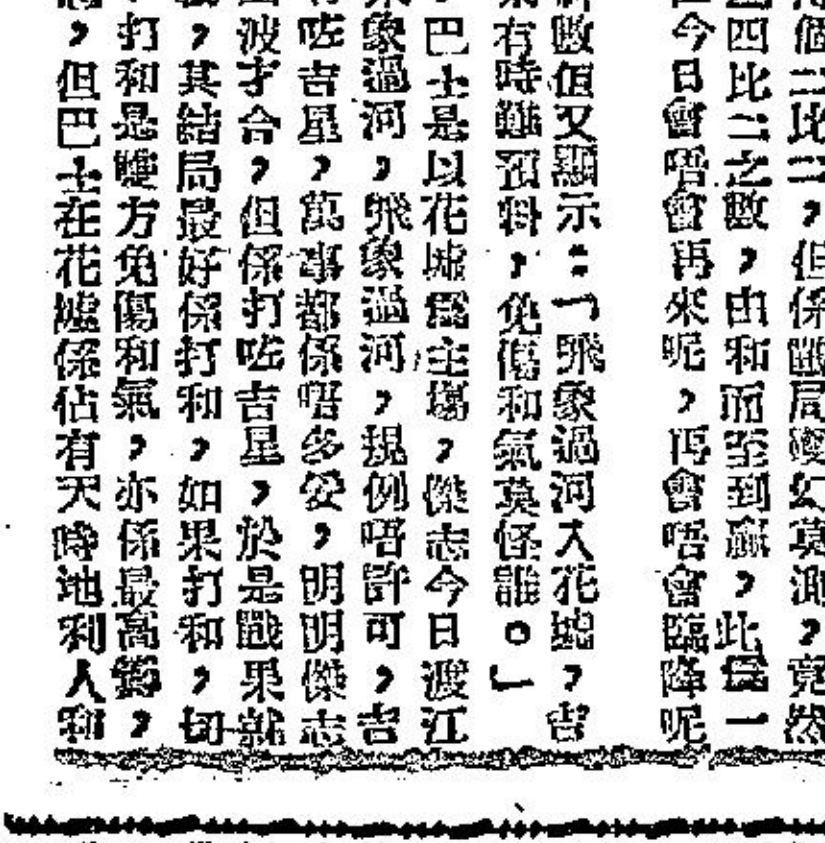 個二比二，但係戰局變幻莫測，竟然
四比二之數，由和而至到贏，此爲一
今日會唔會再來呢，再會唔會臨降呢
數但又顯示：「飛象過河入花墟，吉
有時難預料，免傷和氣莫怪誰。」
巴士是以花墟爲主塲，傑志今日渡江
象過河，飛象過河，規例唔許可，吉
咗吉星，萬事都係唔多妥，明明傑志
波才合，但係打咗吉星，於是戰果就
，其結局最好係打和，如果打和，切
打和是雙方免傷和氣，亦係最高
，但巴士在花墟係佔有天時地利人和